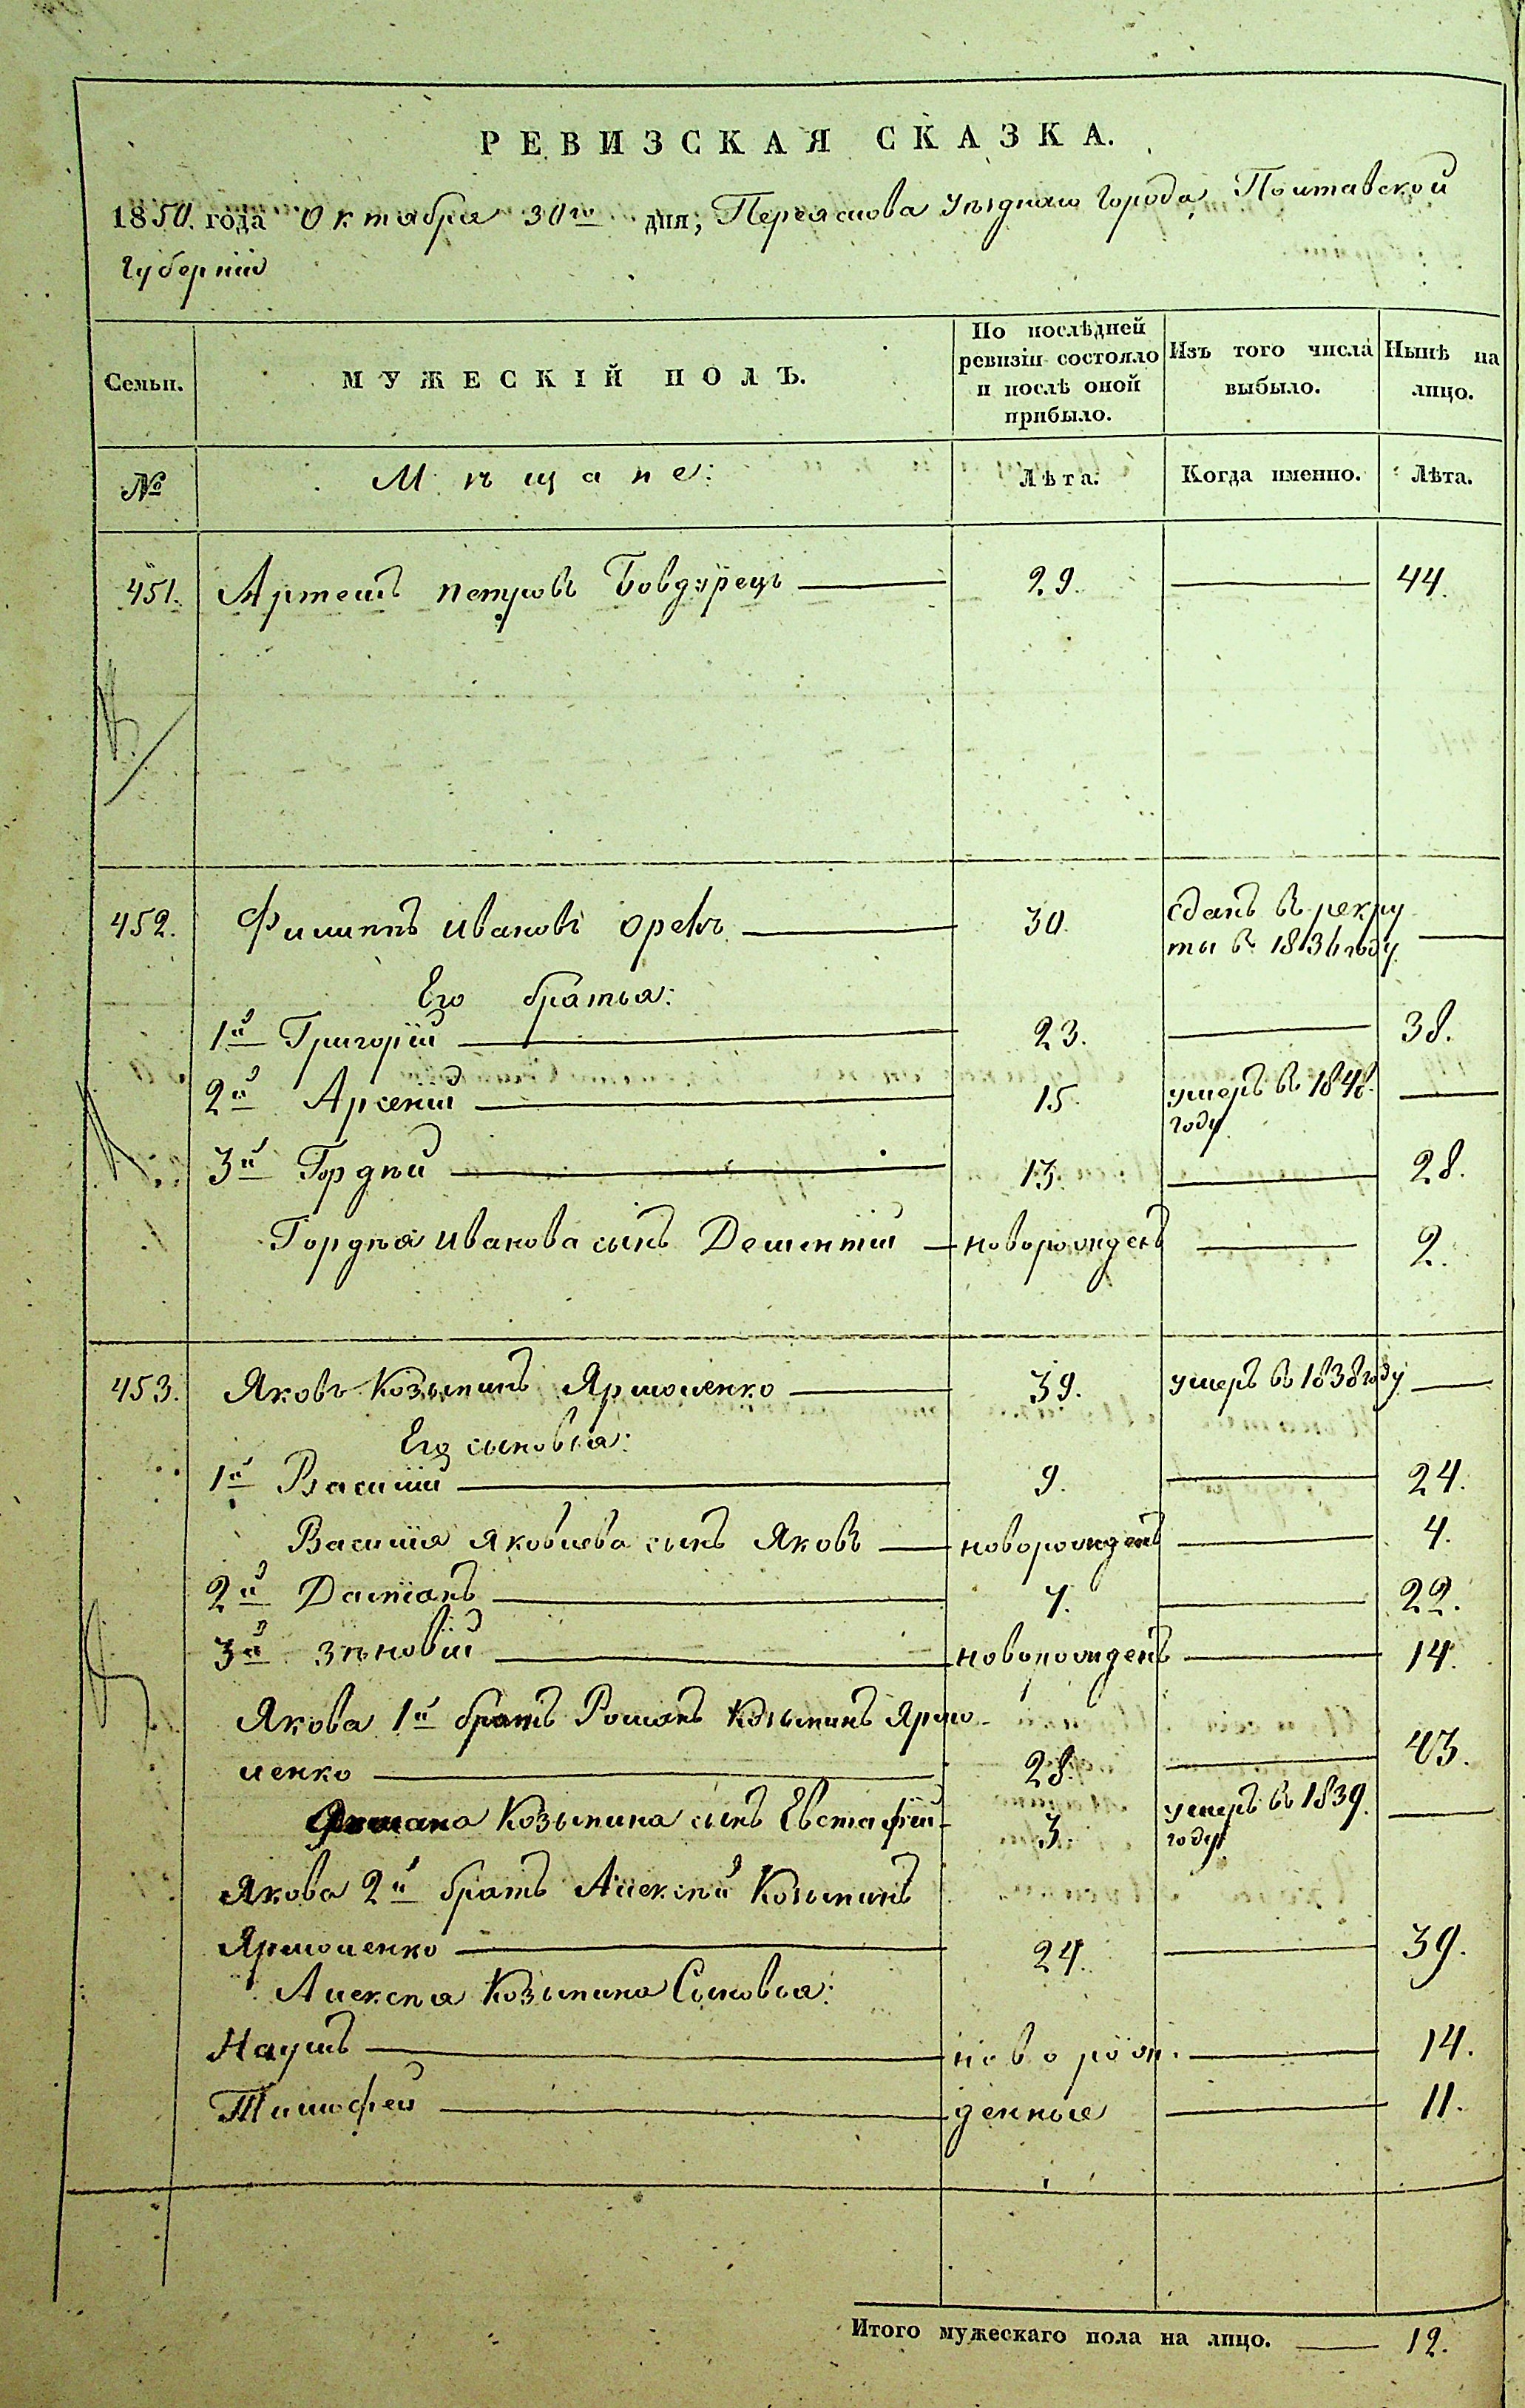 РЕВИЗСКАЯ СКАЗКА.
1850. года Октября 30го дня; Переяслова уѣзднаго города, Полтавской
Губерніи
Семьи.
МУЖЕСКІЙ ПОЛЪ.
По послѣдней
ревизіи состояло
и послѣ оной
прибыло.
Изъ того числа
выбыло.
Нынѣ на
лицо.
№
Мѣщане:
Лѣта.
Когда именно.
Лѣта.
451. Артемъ Петровъ 29. 44.
452. Филиппъ Ивановъ 30. Сданъ въ рекру
ты въ году
Его братья:
1й Григорій 23. 38.
2й Арсеній 15. умеръ въ 1848.
году
3й Гордѣй 13. 28.
Гордѣя Иванова сынъ Дементій новорожденъ 2.
453. Яковъ Козьминъ Ярмоленко 39. умеръ въ 1838 году
Его сыновья:
1й Василій 9. 24.
Василія Яковлева сынъ Яковъ новорожденъ 4.
2й Даміанъ 7. 22.
3й Зѣновій новорожденъ 14.
Якова 1й братъ Романъ Козьминъ Ярмо-
ленко 28. 43.
Романа Козьмина сынъ Евстафій 3. умеръ въ 1839.
году
Якова 2й братъ Алексѣй Козьминъ
Ярмоленко 24. 39.
Алексѣя Козьмина Сыновья:
Наумъ новорож- 14.
Тимофей денные 11.
Итого мужескаго пола на лицо. 12.